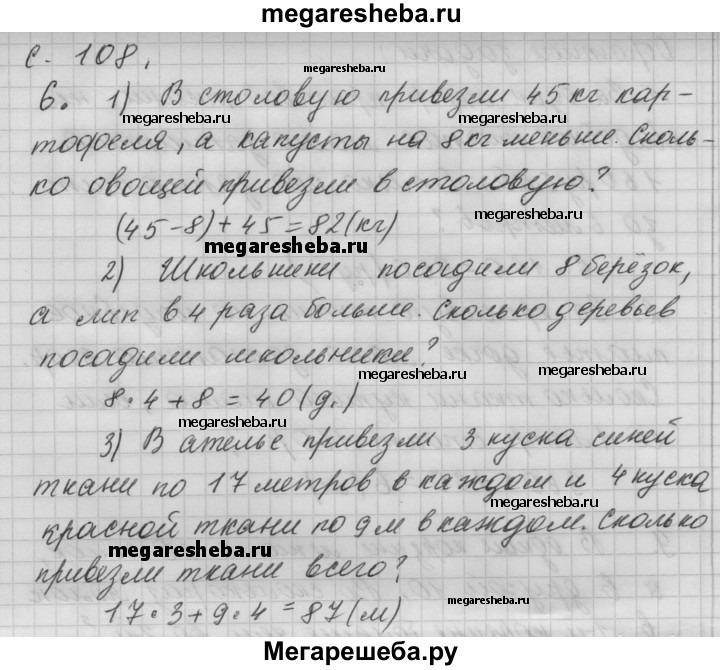 megaresheba.ru
с. 108.
megaresheba.ru
6. 1) В столовую привезли 45 кг кар-
megaresheba.ru
тофеля, а капусты на 8 кг меньше. Сколь-
ко овощей привезли в столовую?
megaresheba.ru
(45-8)+45=82(кг)
megaresheba.ru
2) Школьники посадили 8 берёзок,
megaresheba.ru
а лип в 4 раза больше. Сколько деревьев
посадили школьники?
megaresheba.ru
megaresheba.ru
8·4+8=40(д.)
3) В ателье привезли 3 куска синей
megaresheba.ru
ткани по 17 метров в каждом и 4 куска
megaresheba.ru
красной ткани по 9 м в каждом. Сколько
megaresheba.ru
привезли ткани всего?
megaresheba.ru
17·3+9·4=87(м)
Мегарешеба.ру